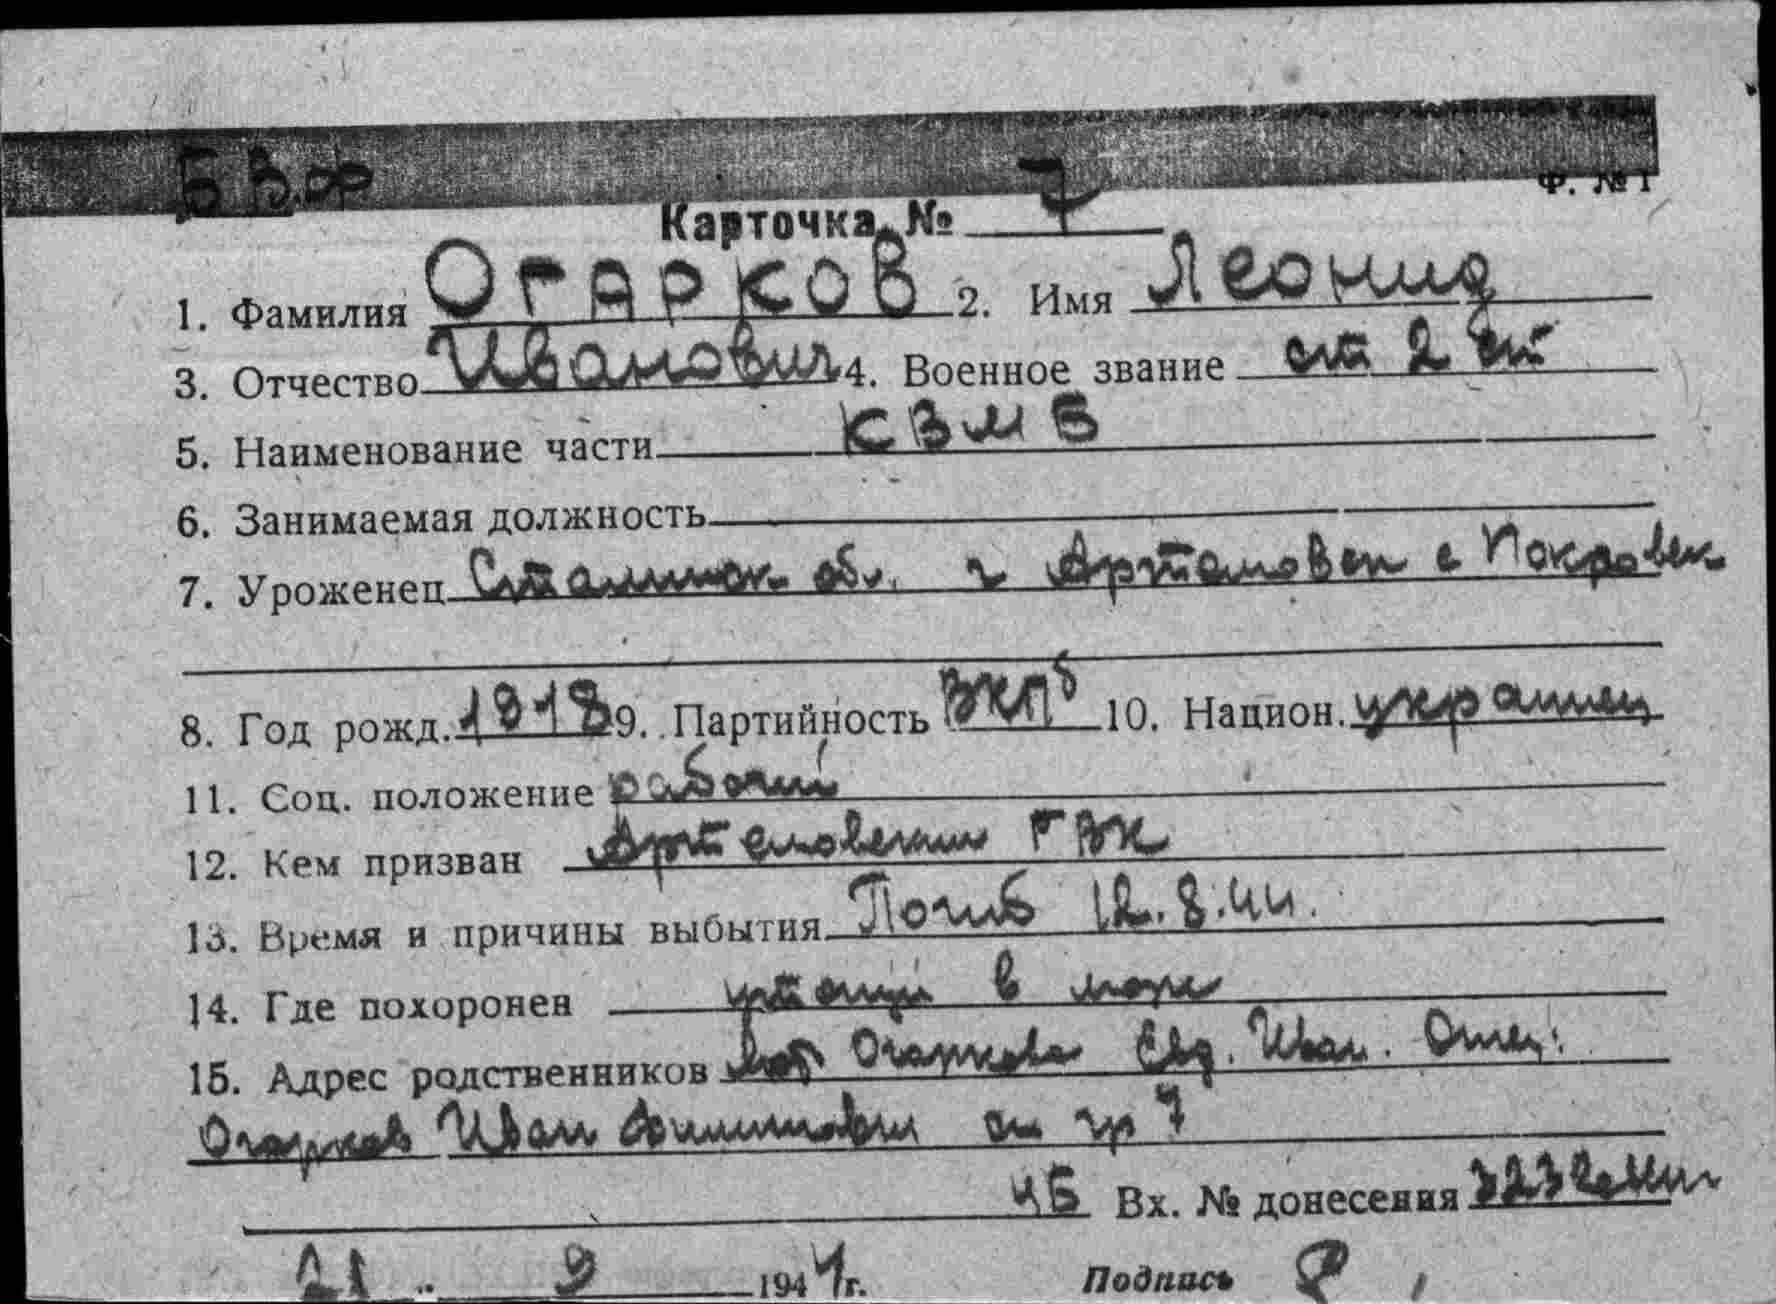 Б В.ф
Ф. № 1
Карточка № 7
1. Фамилия Огарков 2. Имя Леонид
3. Отчество Иванович 4. Военное звание ст 2 ст
5. Наименование части КВМБ
6. Занимаемая должность
7. Уроженец Сталинск обл. г Артемовск с Покровск
8. Год рожд. 1918 9. Партийность ВКПб 10. Национ. украинец
11. Соц. положение рабочий
12. Кем призван Артемовским ГВК
13. Время и причины выбытия Погиб 12.8.44.
14. Где похоронен утонул в море
15. Адрес родственников Огаркова Евд. Иван. Отец:
Огарков Иван Филиппович см гр 7
ЧБ Вх. № донесения 3232
21 " 9 1944 г. Подпись